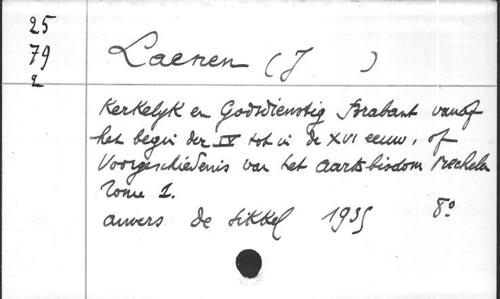 25
79
2
Laenen (J )
Kerkelyk en Godsdienstig Brabant vanaf
het begin der IV tot in de XVI eeuw, of
Voorgeschiedenis van het aartsbisdom Mechelen
Tome I.
anvers de Sikkel 1935 8º